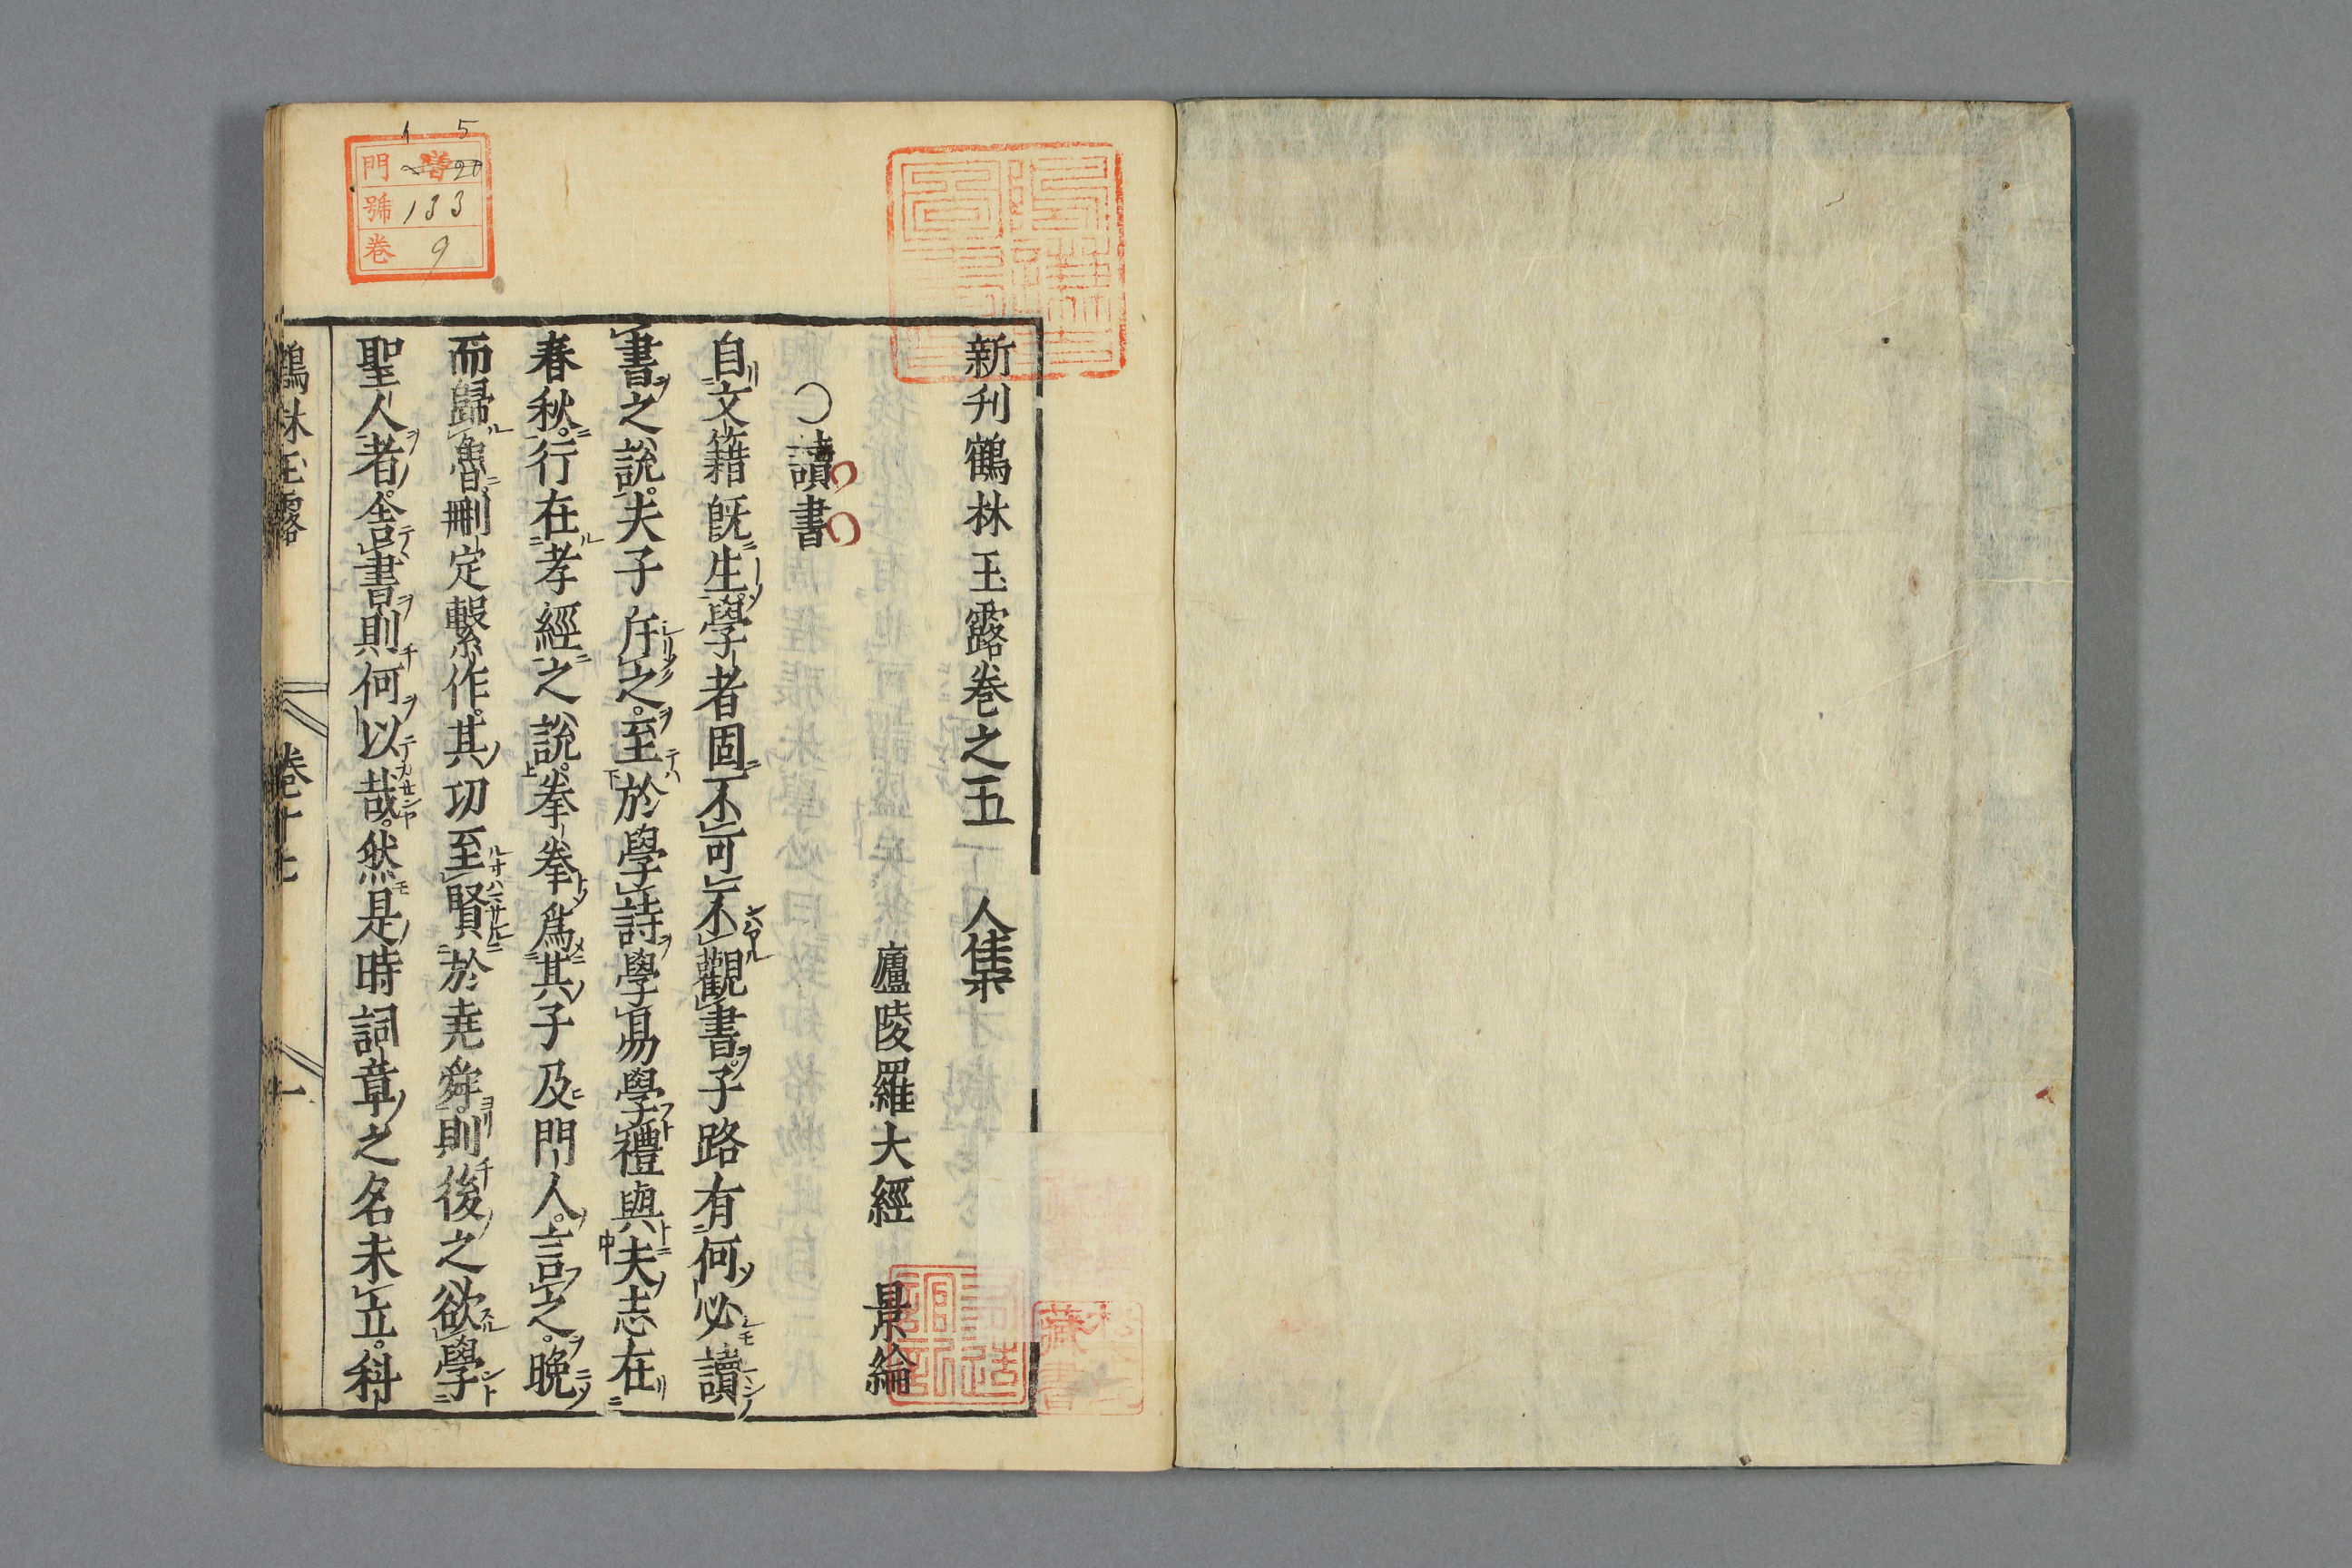 新刊鶴林玉露卷之五　人集
廬陵羅大經　景綸
○讀書
自文籍既生。學者固不可不觀書。子路有何必讀
書之說。夫子斥之。至於學詩學易學禮與夫志在
春秋。行在孝經之說。拳拳爲其子及門人。言之。晚
而歸魯刪定繫作。其功至賢於堯舜。則後之欲學
聖人者。舍書則何以哉。然是時詞章之名未立。科
鶴林玉露　卷十七　一
1 5
門 20
號 133
卷 9
藏書